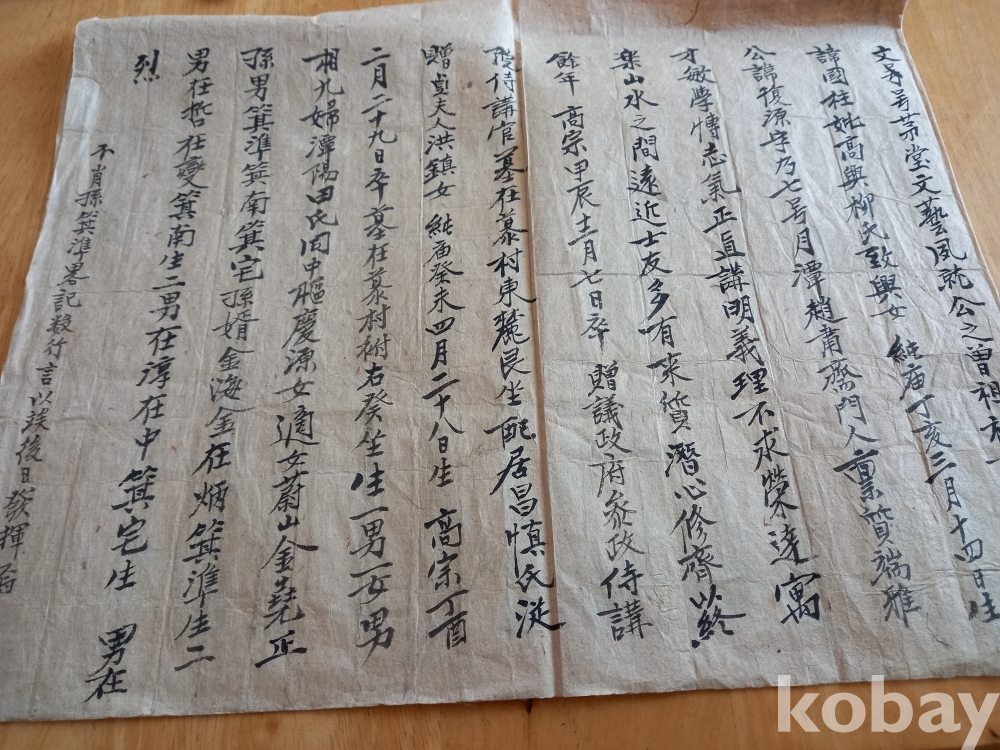 文考号茅堂文藝夙就公之曾祖
諱國柱妣高興柳氏致興女 純庙丁亥三月十四日生
公諱復源字乃七号月潭趙肅齋門人禀質端雅
才敏學博志氣正直講明義理不求榮達寓
樂山水之間遠近士友多有來質潛心修齊以終
餘年 高宗甲辰十二月七日卒 贈議政府參政侍講
院侍講官墓在墓村東麓艮坐配居昌愼氏從
贈貞夫人洪鎭女 純庙癸未四月二十八日生 高宗丁酉
二月二十九日卒 墓在墓村祔右癸坐生一男一女男
相九婦潭陽田氏同中樞慶源女適女蔚山金堯正
孫男箕準箕南箕宅孫婿金海金在炳箕準生二
男在哲在燮箕南生二男在淳在中 箕宅生 男在
烈
不肖孫箕準畧記數行言以俟後日發揮
kobay